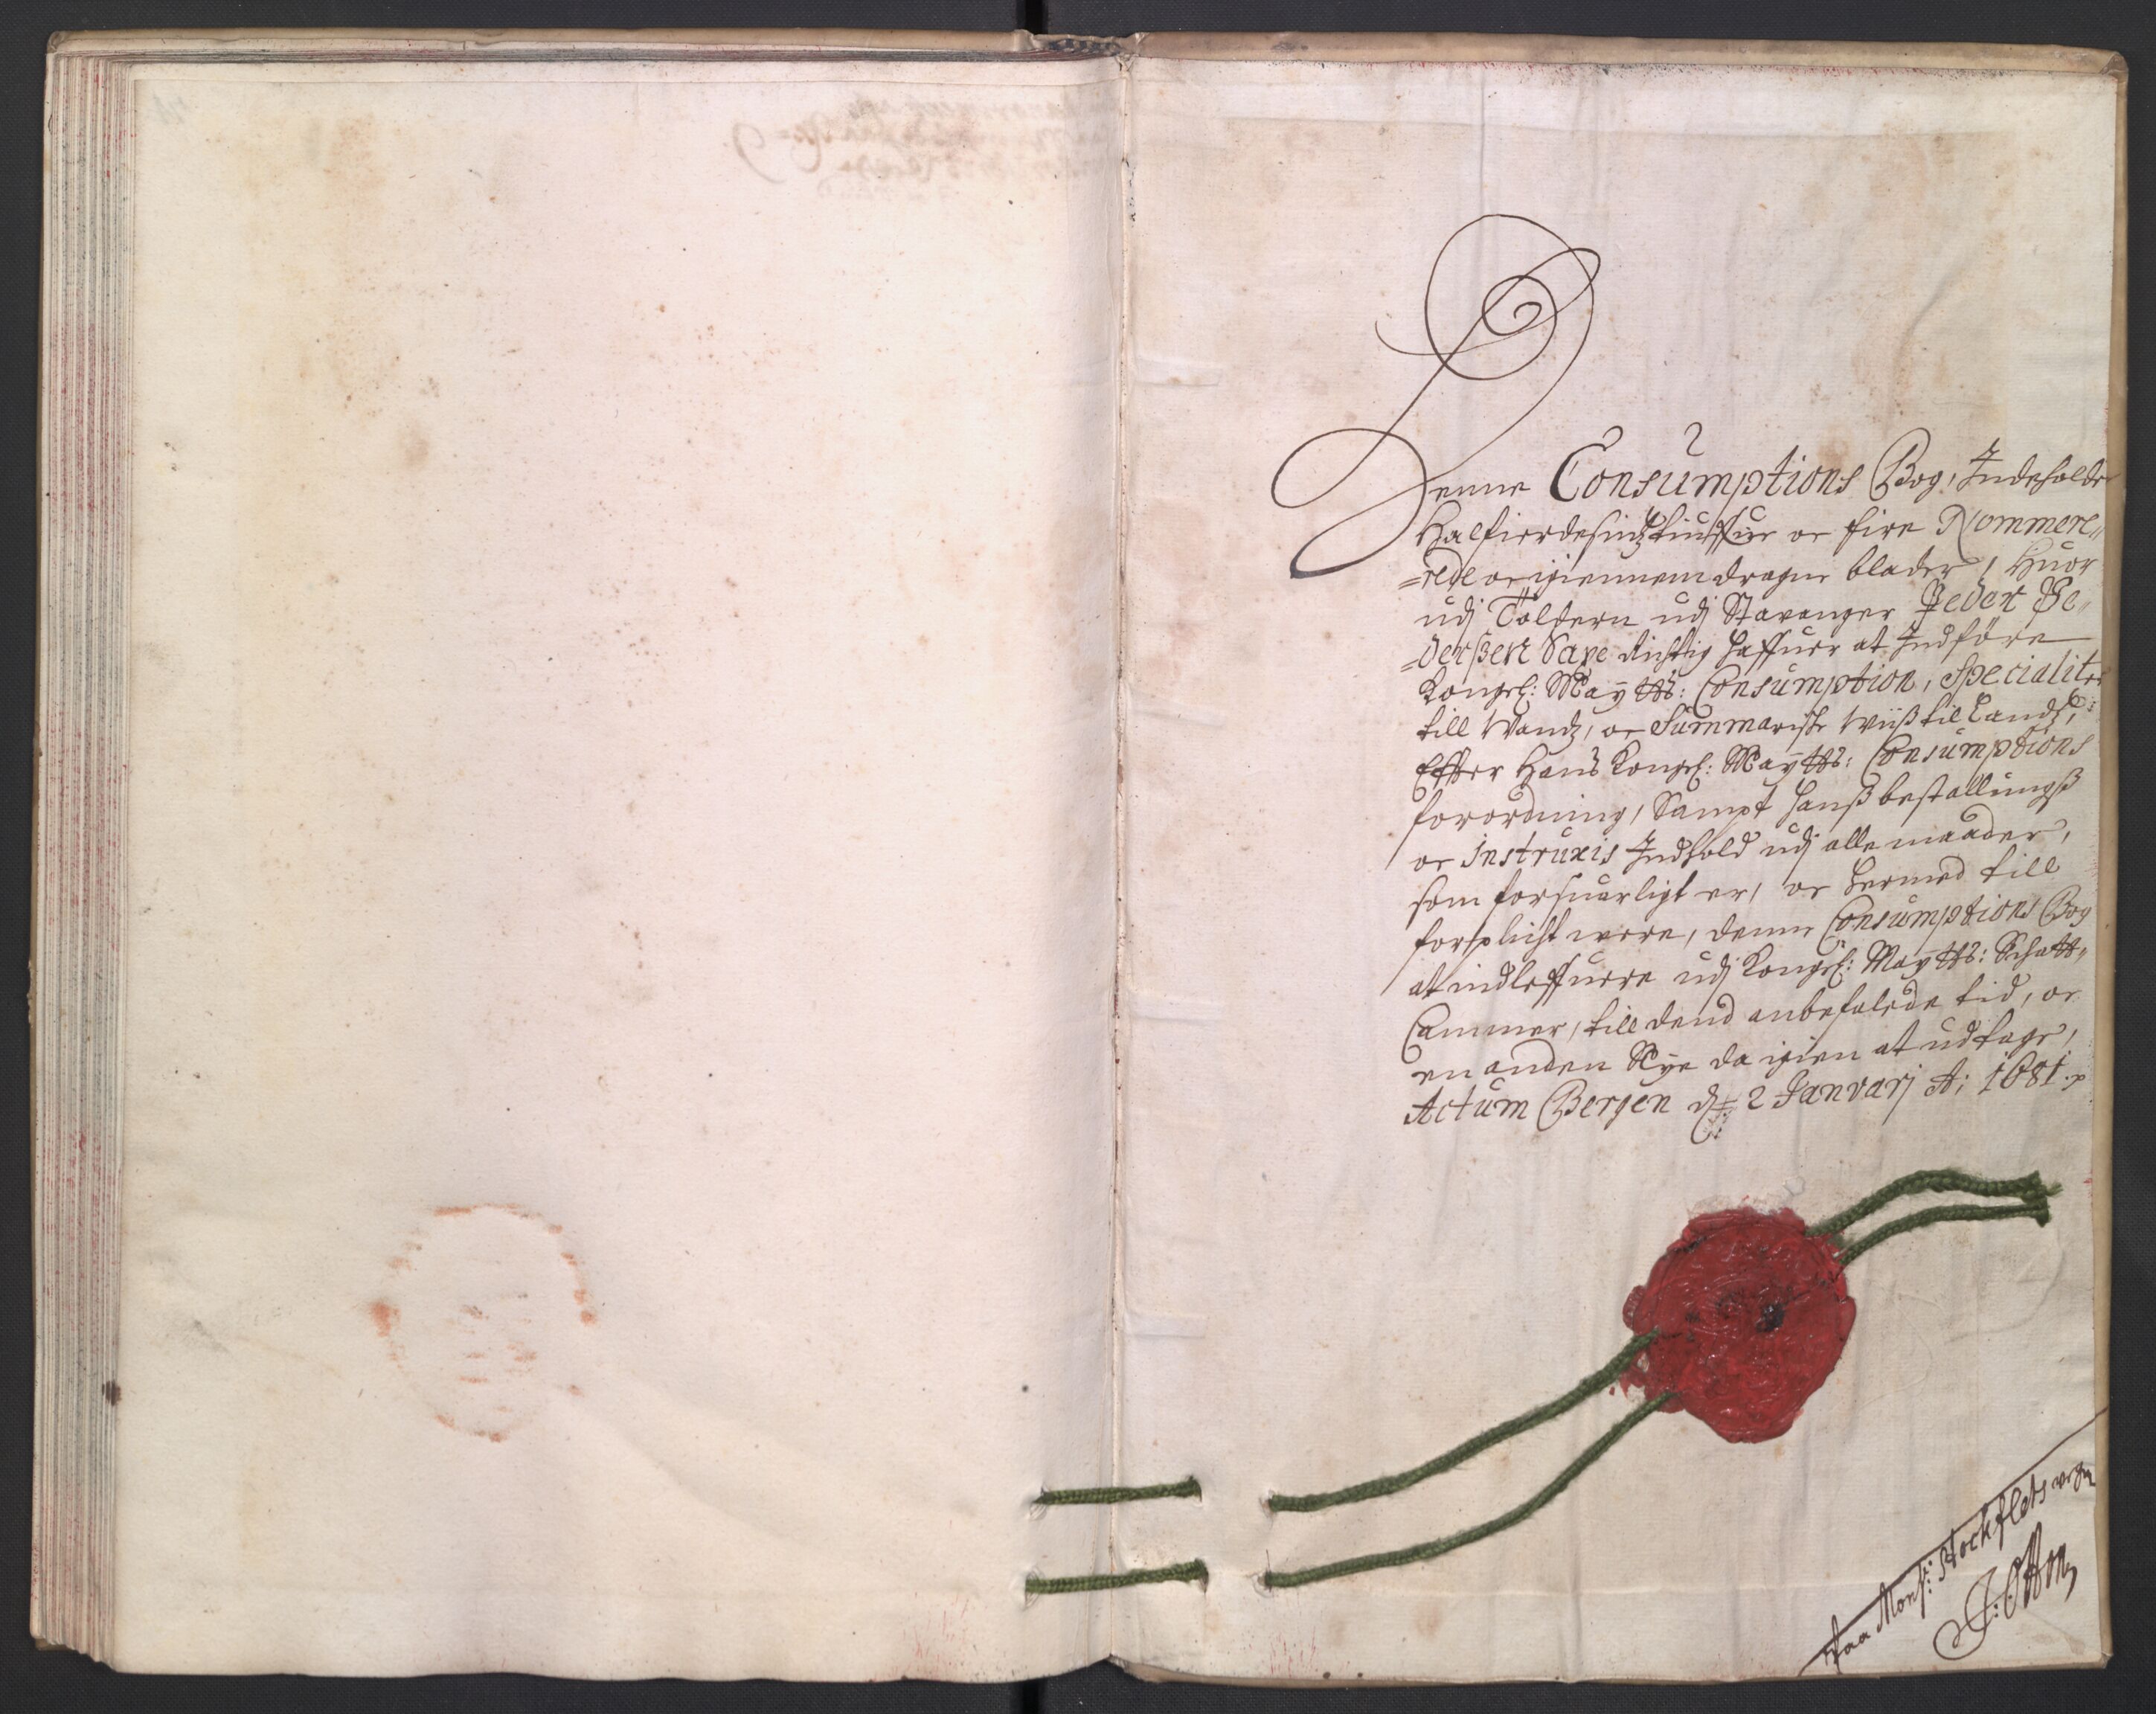 Denne Consumptions Bog, Indeholder
Halfierdesindztiuffue oc fire Nommere„
=rede oc igiennemdragne blader, Huor
udj Tolderen udj Stavanger Peder Pe„
=derßen Saxe Richtig haffuer at Indföre
Kongel: Maÿtts: Consumption, Specialiter
till Wandz, oc Summariske wiiß til Landz,
Effter Hans Kongel: Maÿtts: Consumptions
forordning, Sampt hanß bestallungß
oc Instruxis Indhold udj alle maader,
som forsuarligt er, oc hermed till
forplicht were, denne Consumptions Bog
at indleffuere udj Kongel: Maÿtts: Schatt„
Cammer, till dend anbefalede tid, oc
en anden Nÿe da igien at udtage,
Actum Bergen d: 2 Janvarj A: 1681.
Paa Monsr: Stockflets vegne
J: Otton